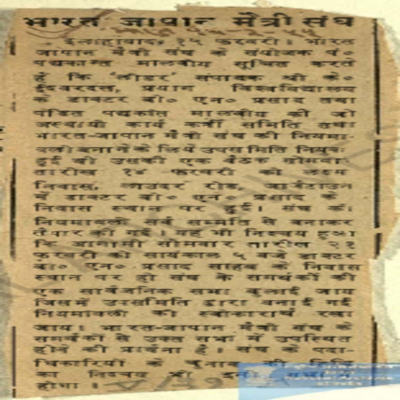 भारत जापान मैत्री संघ
इलाहाबाद, १५ फरवरी। भारत
जापान मैत्री संघ के संयोजक पं०
पद्मकान्त मालवीय सूचित करते
हैं कि 'लीडर' संपादक श्री के०
ईश्वरदत्त, प्रयाग विश्वविद्यालय
के डाक्टर बी० एन० प्रसाद तथा
पंडित पद्मकांत मालवीय की जो
अस्थायी कार्य कर्त्री समिति तथा
भारत-जापान मैत्री संघ की नियमा-
वली बनाने के लिये उपसमिति नियुक्त
हुई थी उसकी एक बैठक सोमवार
तारीख १४ फरवरी को
निवास, लाउदर रोड, जार्जटाउन
में डाक्टर बी० एन० प्रसाद के
निवास स्थान पर हुई। संघ की
नियमावली सर्व सम्मति से बनाकर
तैयार की गई। यह भी निश्चय हुआ
कि आगामी सोमवार तारीख २१
फरवरी को सायंकाल ५ बजे डाक्टर
बी० एन० प्रसाद साहब के निवास
स्थान पर ही संघ के समर्थकों की
एक सार्वजनिक सभा बुलाई जाय
जिसमें उपसमिति द्वारा बनाई गई
नियमावली की स्वीकारार्थ रखा
जाय। भारत-जापान मैत्री संघ के
समर्थकों से उक्त सभा में उपस्थित
होने की प्रार्थना है। संघ के पदा-
धिकारियों के चुनाव की
का निश्चय भी इसी सभा
होगा।